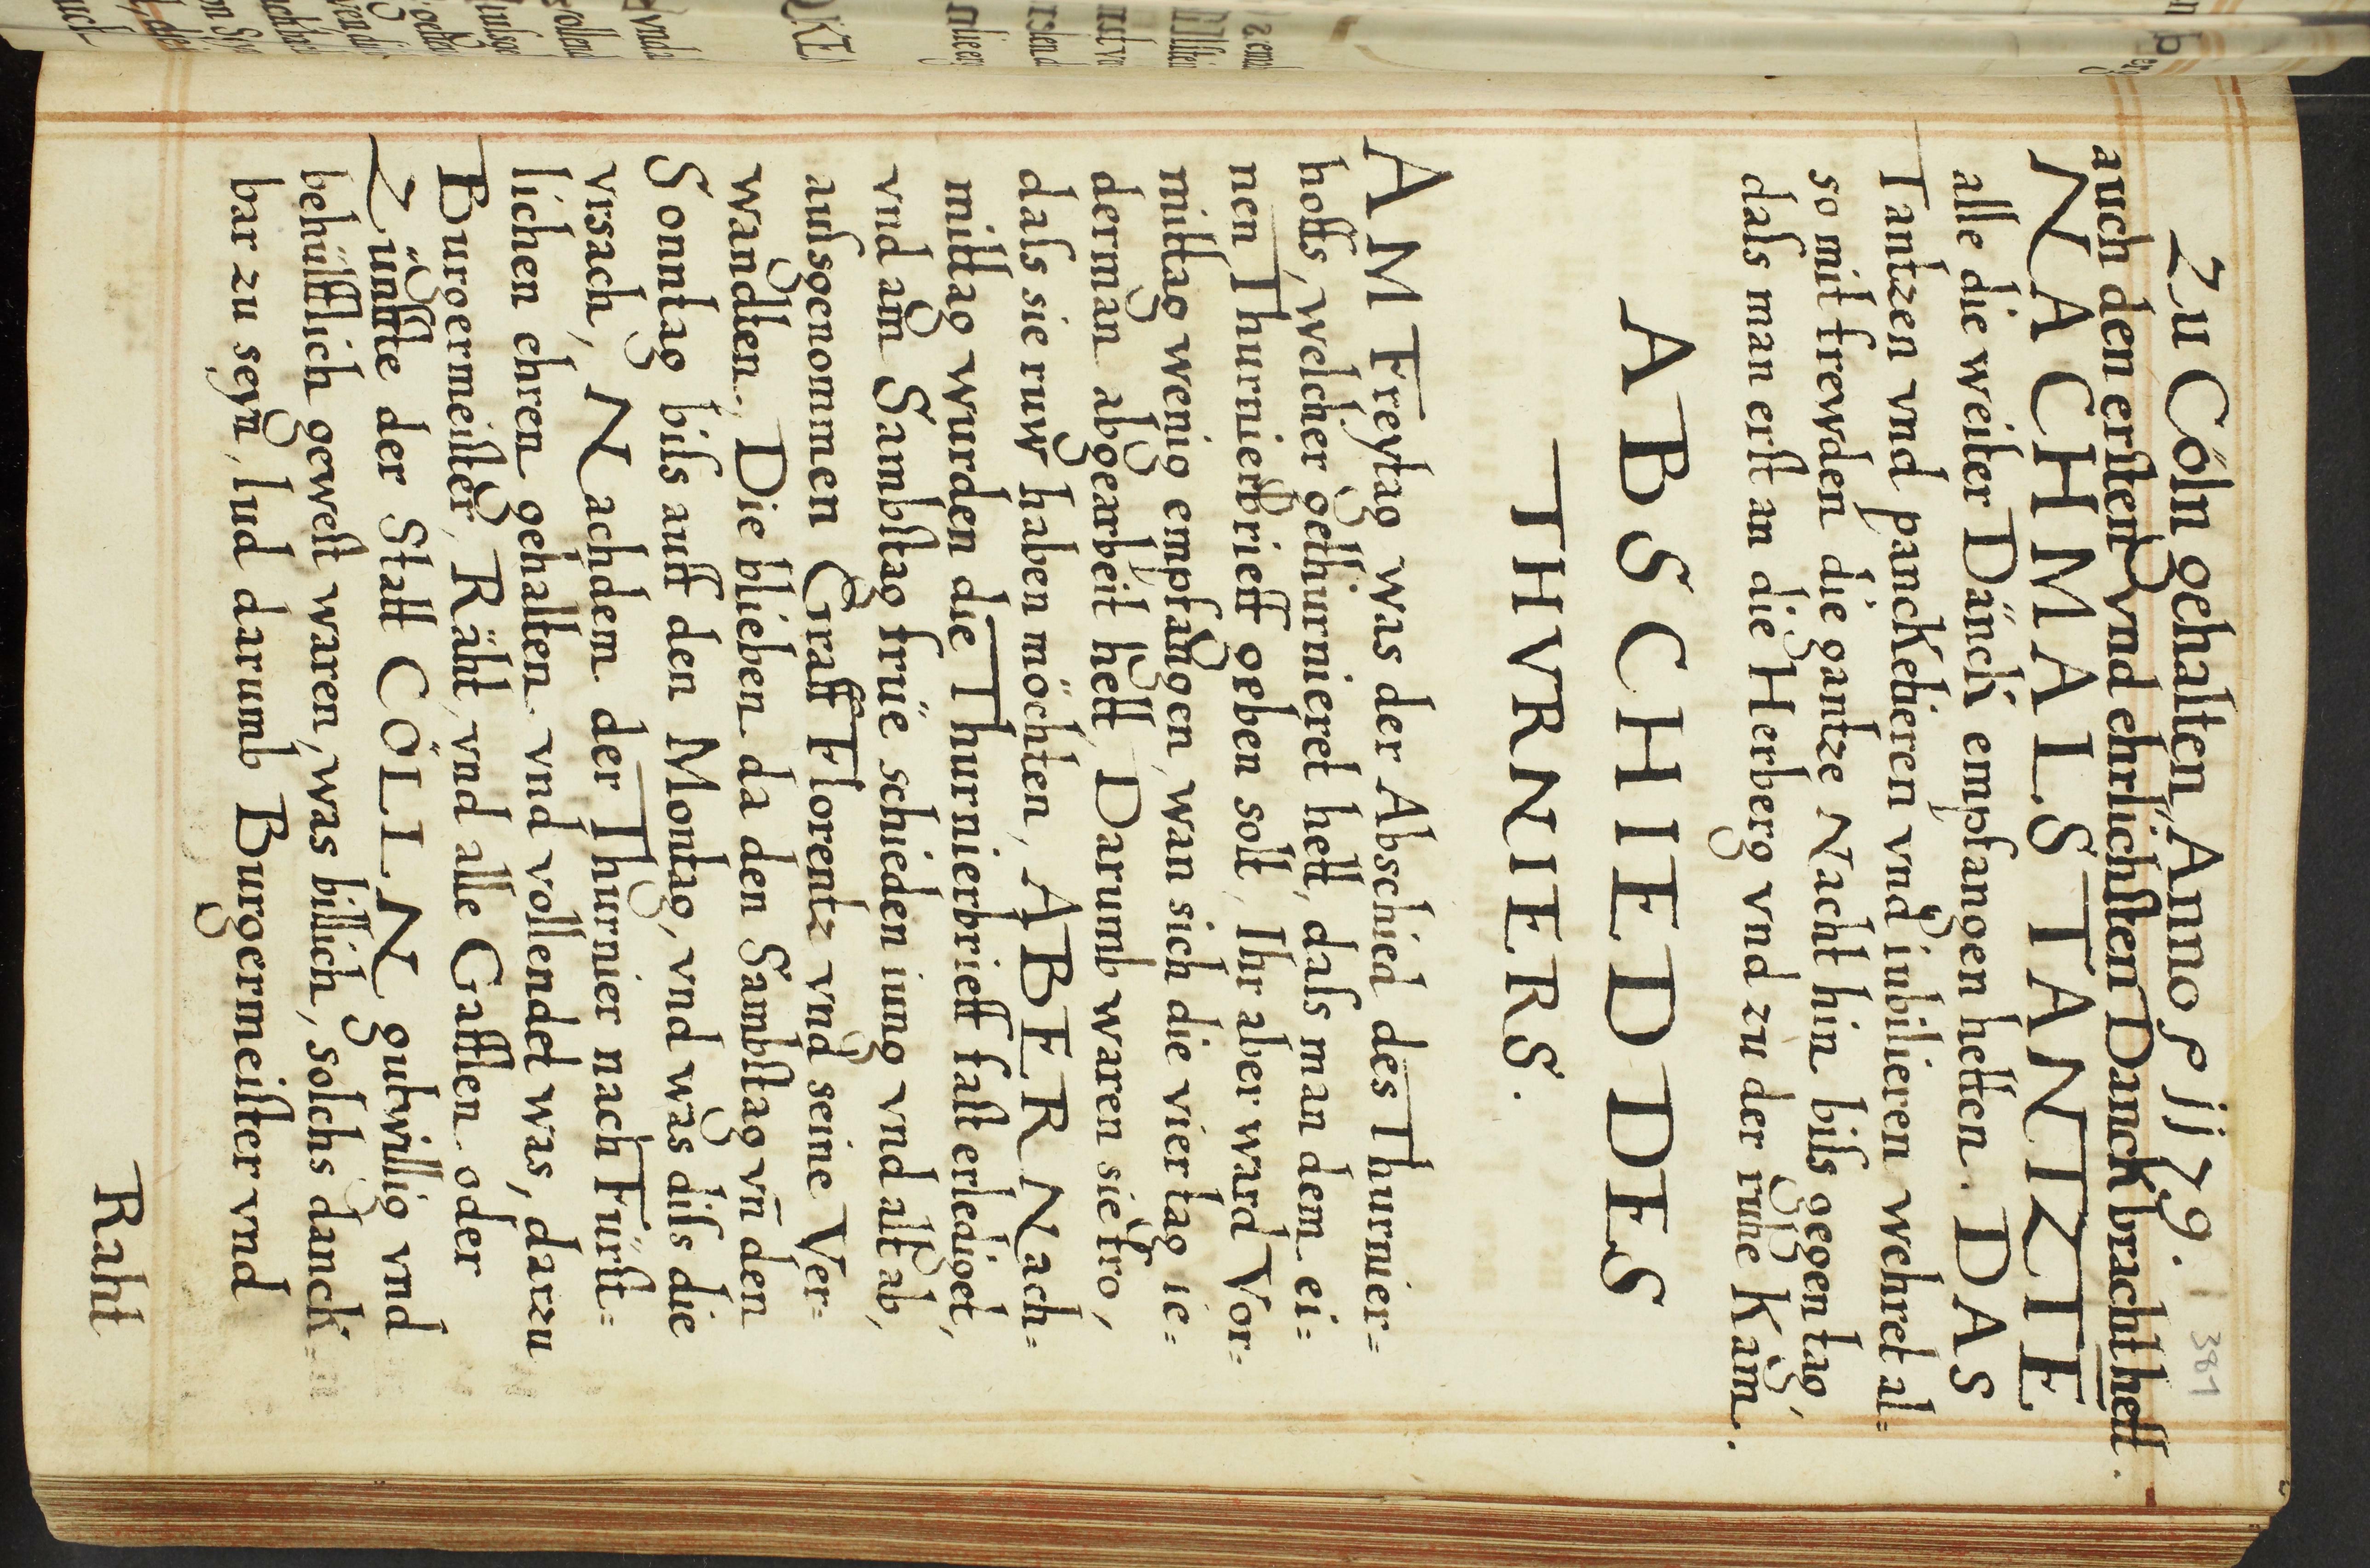 Zu Cöln gehalten, Anno 1179.
381
auch den ersten vnd ehrlichsten Danck bracht hett.
NACHMALS TANTZTE
alle die weiter Dänck empfangen hetten. DAS
Tantzen vnd panckedieren vnd iubilieren wehret al=
so mit frewden die gantze Nacht hin biss gegen tag,
dass man erst an die Herberg vnd zu der ruhe Kam.
ABSCHIEDT DES
THVRNIERS.
AM Freytag was der Abschied des Thurnier=
hoffs, welcher gethurnieret hett, dass man dem ei=
nen Thurnierbrieff geben solt, Ihr aber ward Vor=
mittag wenig empfangen, wan sich die vier tag ie=
derman abgearbeit hett, Darumb waren sie fro,
dass sie ruw haben möchten, ABER Nach=
mittag wurden die Thurnierbrieff fast erlediget,
vnd am Sambstag früe schieden iung vnd alt ab,
aussgenommen Graff Florentz vnd seine Ver=
wandten, Die blieben da den Sambstag vn̄ den
Sonntag biss auff den Montag, vnd was diss die
vrsach, Nachdem der Thurnier nach Fürst=
lichen ehren gehalten vnd vollendet was, darzu
Burgermeister, Räht, vnd alle Gafflen oder
Zünffte der Statt CÖLLN gutwillig vnd
behülfflich gewest waren, was billich, solchs danck=
bar zu seyn, lud darumb Burgermeister vnd
Raht